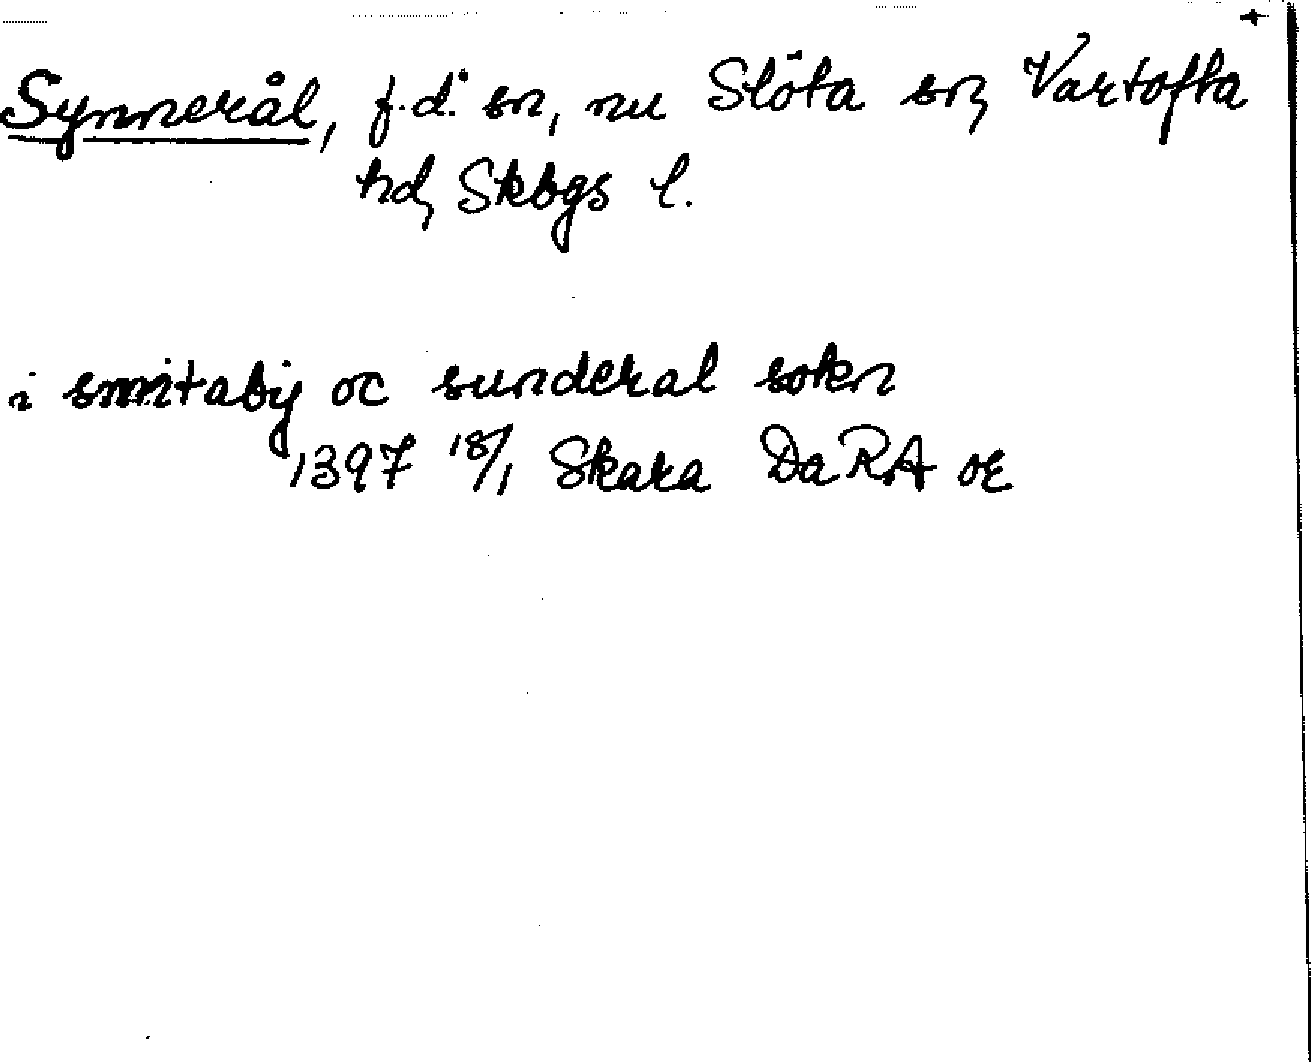 Synnerål, f.d. sn, nu Slöta sn, Vartofta
hd, Skbgs l.
i smitabij oc sunderal sokn
1397 18/1 Skara DaRA or